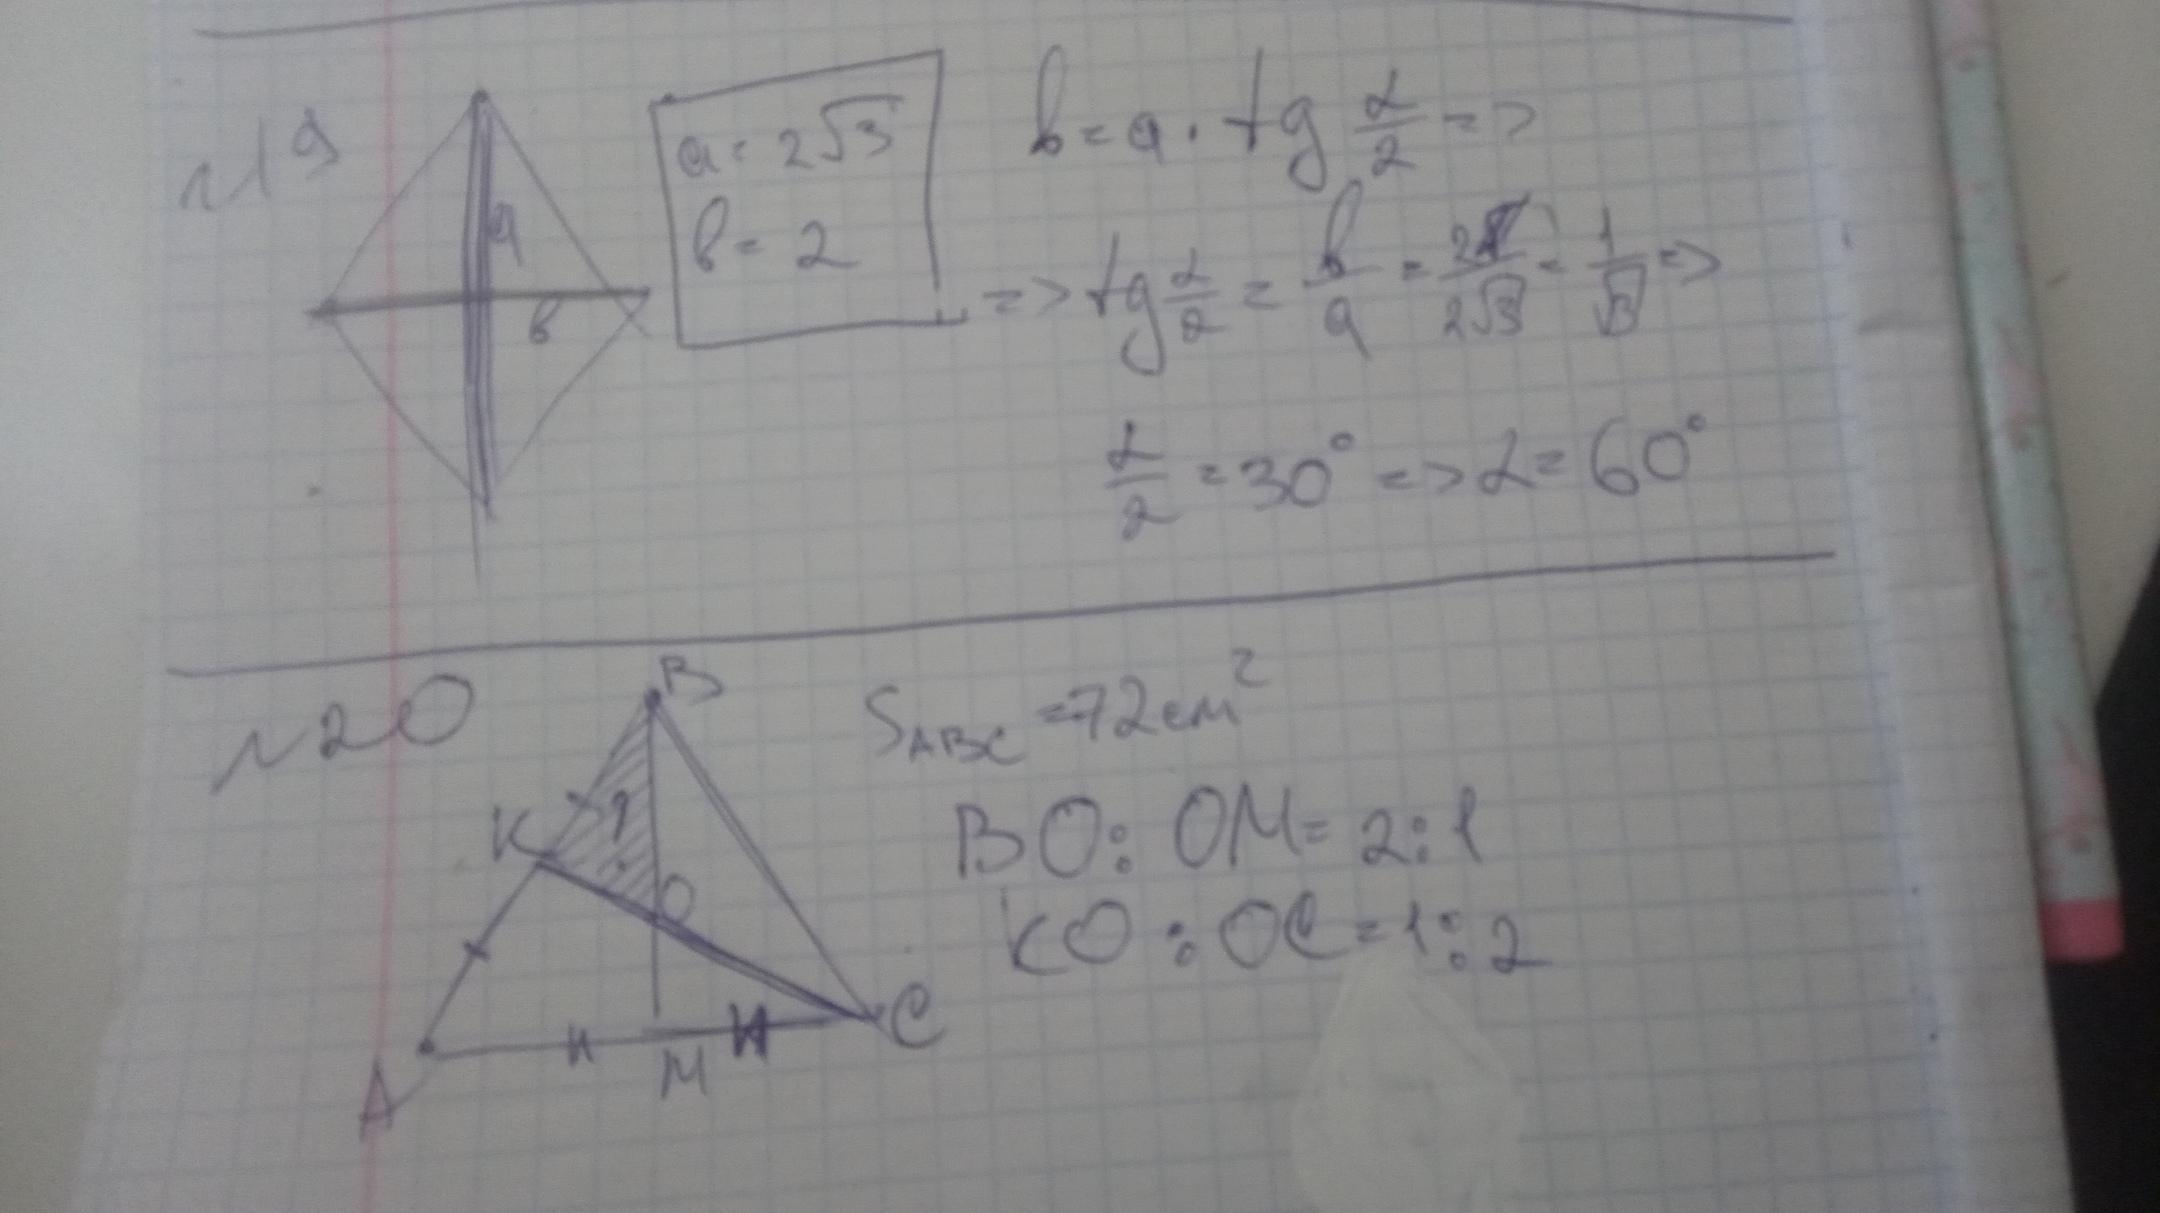 №19
a
b
a = 2√3
b = 2
b = a · tg α/2 =>
=> tg α/2 = b/a = 2/2√3 = 1/√3 =>
α/2 = 30° => α = 60°
№20
B
K
?
O
A
M
C
S_ABC = 72 см²
BO : OM = 2:1
KO : OC = 1:2